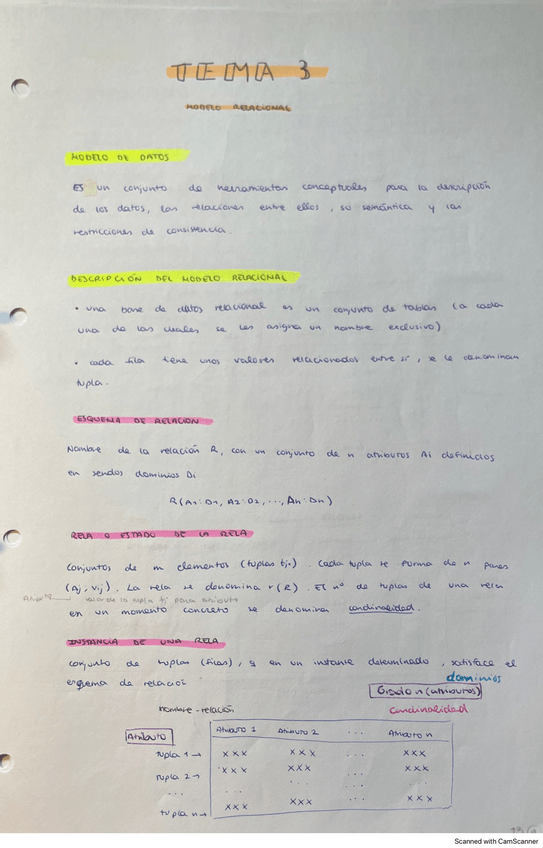 TEMA 3
MODELO RELACIONAL
MODELO DE DATOS
ES un conjunto de herramientas conceptuales para la descripción
de los datos, las relaciones entre ellos, su semántica y las
restricciones de consistencia.
DESCRIPCIÓN DEL MODELO RELACIONAL
• una base de datos relacional es un conjunto de tablas (a cada
una de las cuales se les asigna un nombre exclusivo)
• cada fila tiene unos valores relacionados entre sí, se le denominan
tupla.
ESQUEMA DE RELACION
Nombre de la relación R, con un conjunto de n atributos Ai definidos
en sendos dominios Di
R(A1:D1, A2:D2, ..., An:Dn)
RELA O ESTADO DE LA RELA
conjuntos de m elementos (tuplas tj). Cada tupla se forma de n pares
(Aj, Vij). La rela se denomina r(R). El nº de tuplas de una rela
valor de la tupla ti para atributo
en un momento concreto se denomina cardinalidad.
INSTANCIA DE UNA RELA
conjunto de tuplas (filas), y en un instante determinado, satisface el
esquema de relación
dominios
Grado n (atributos)
nombre-relación
cardinalidad
Atributo
Atributo 1 Atributo 2 ... Atributo n
tupla 1 → XXX XXX ... XXX
tupla 2 → XXX XXX ... XXX
... ... ...
tupla n → XXX XXX ... XXX
Scanned with CamScanner